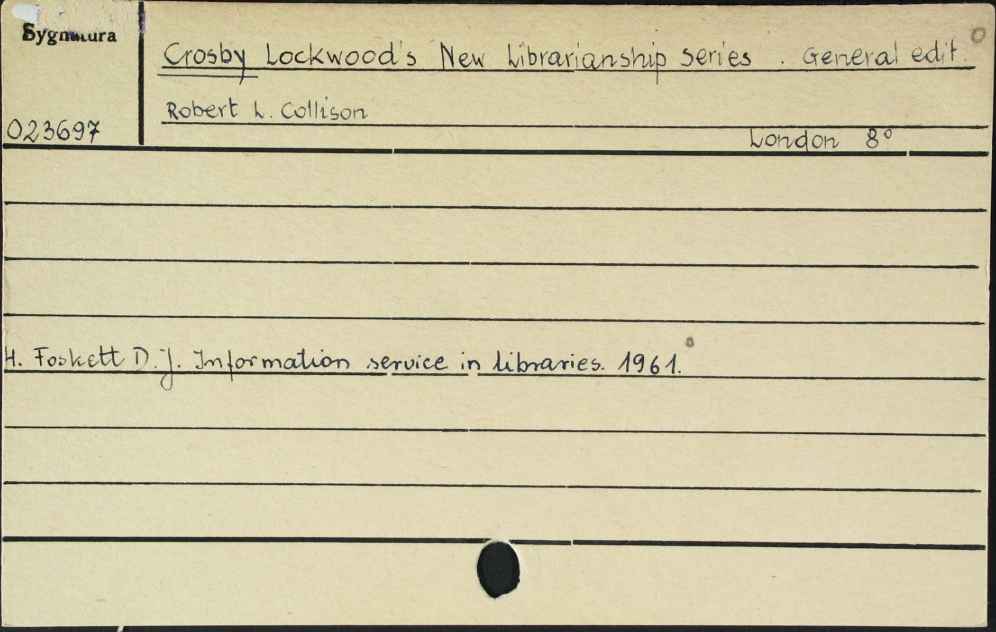 Sygnatura
Crosby Lockwood's New Librarianship Series. General edit.
Robert L. Collison
023697
London 8°
4. Foskett D.J. Information service in libraries. 1961.